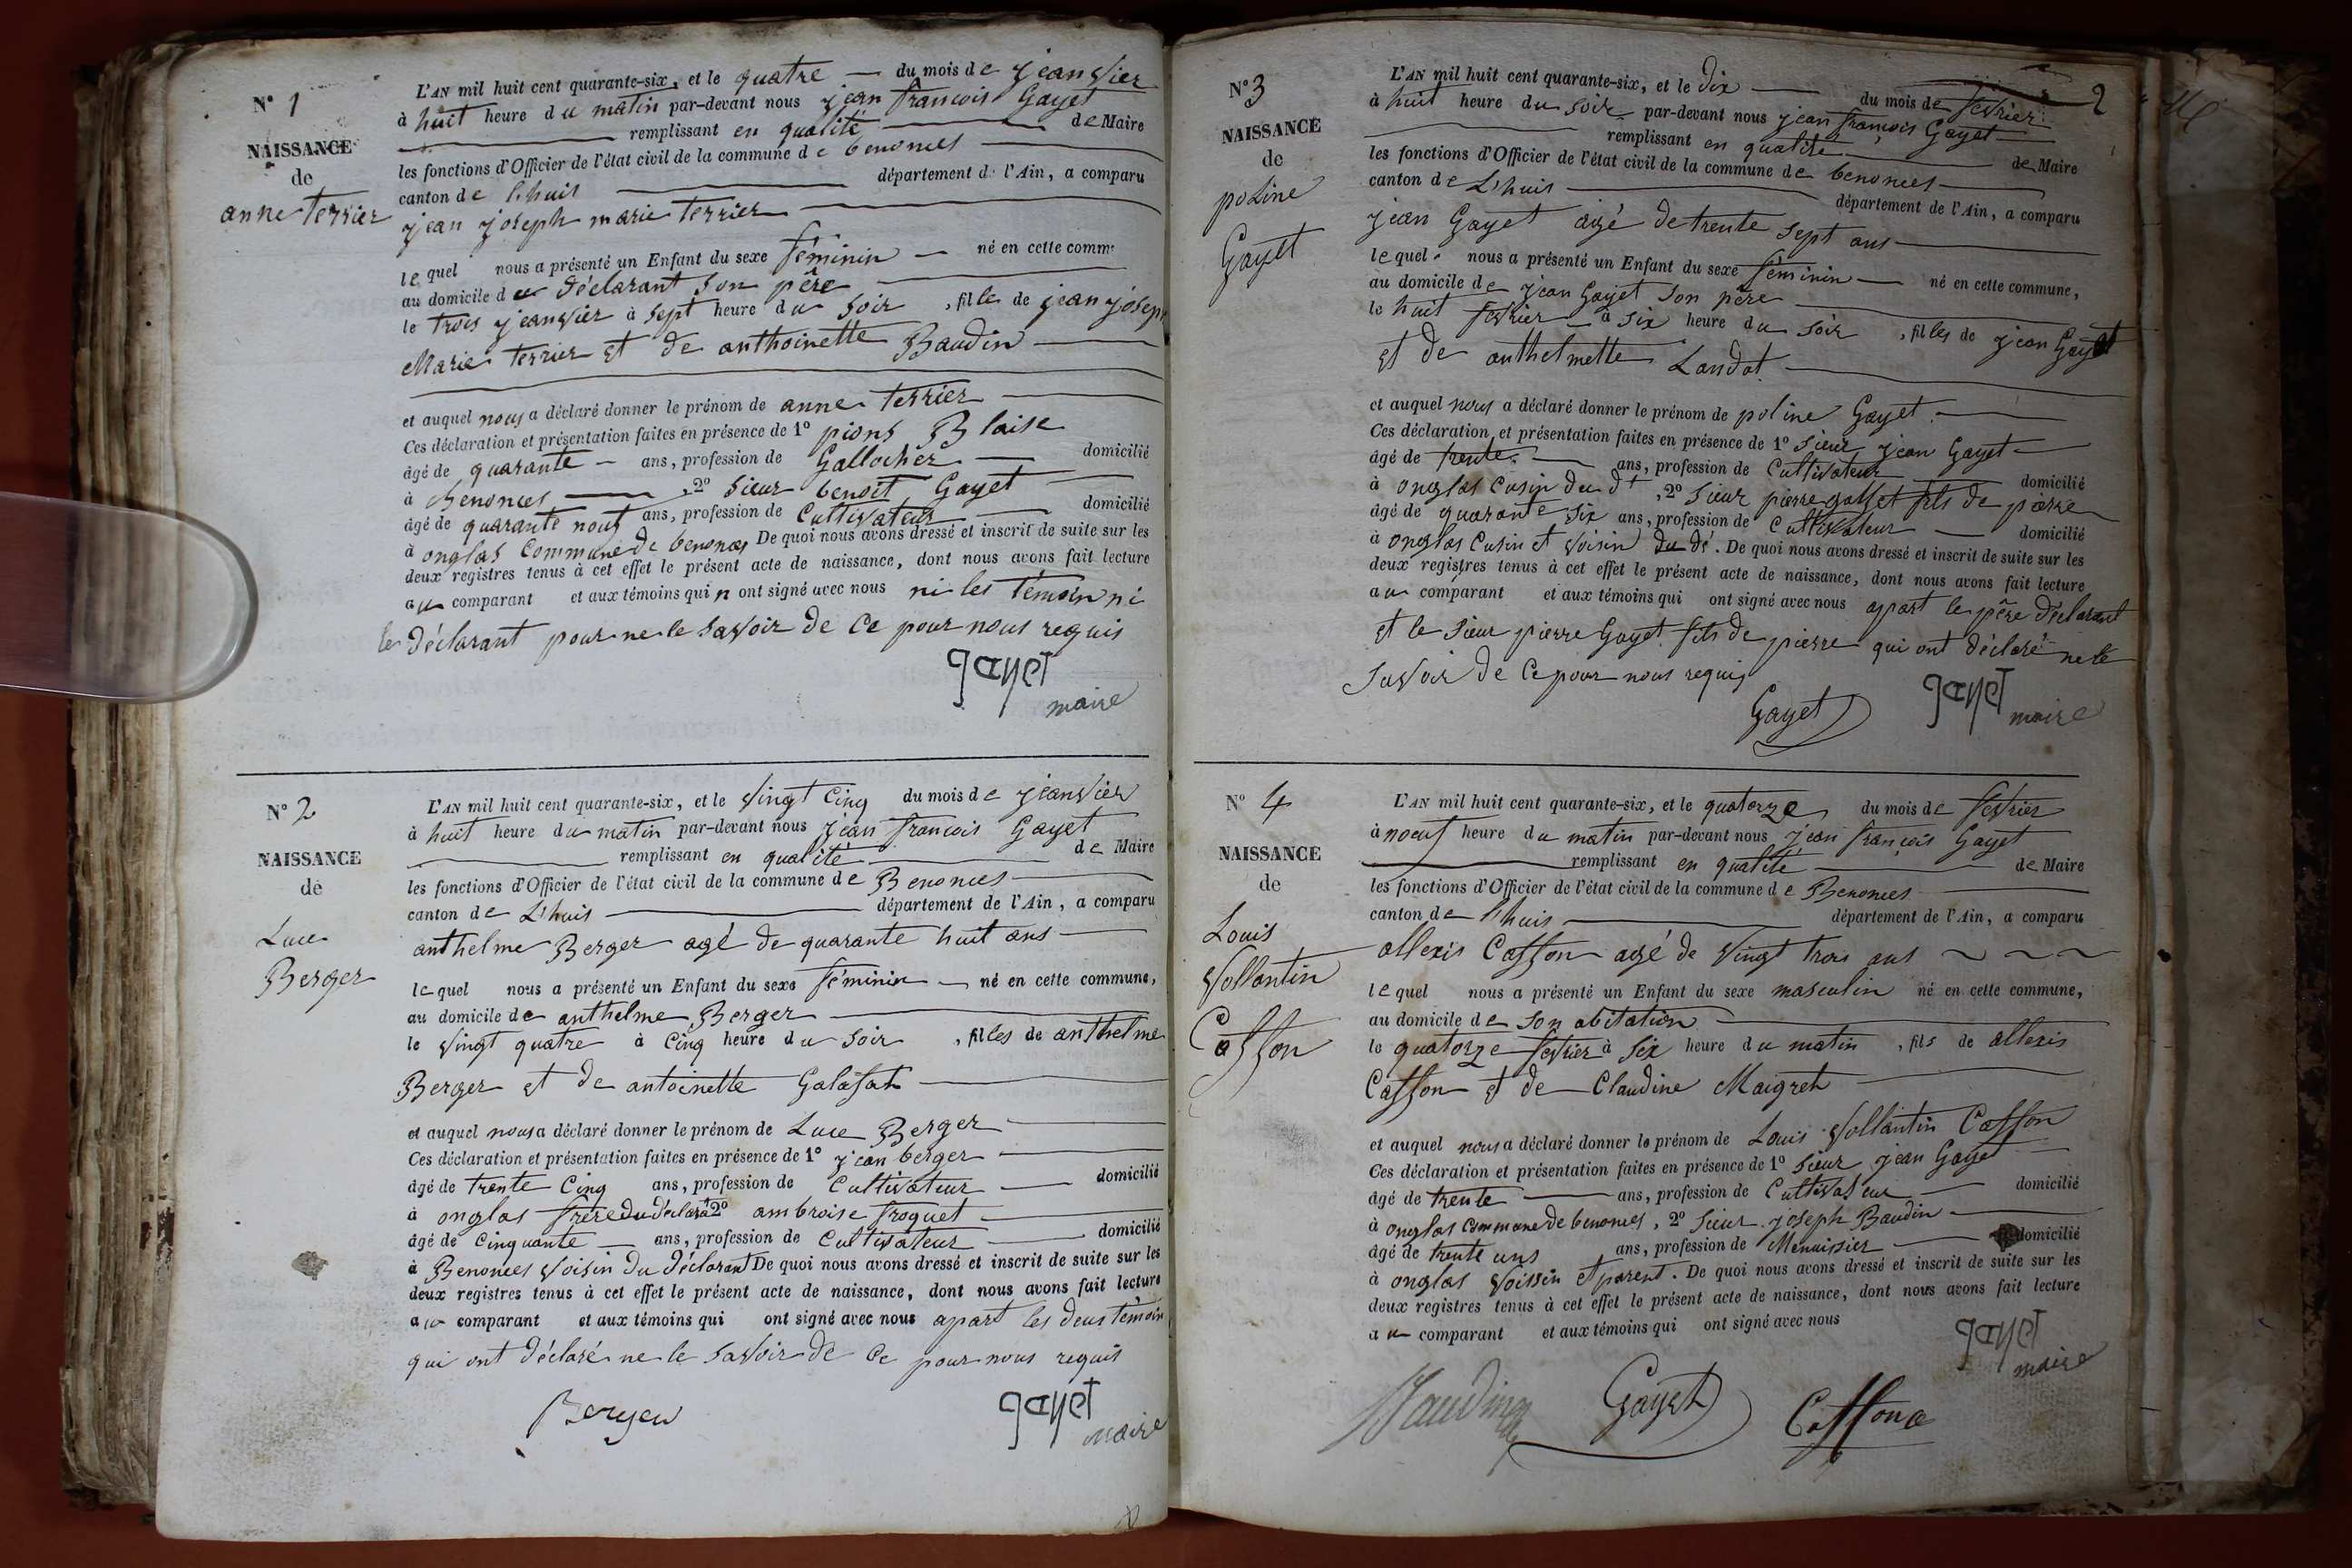 N° 1
NAISSANCE
de
anne terrier
L'AN mil huit cent quarante-six, et le quatre du mois de jeanvier
à huit heure du matin par-devant nous jean francois Gayet
remplissant en qualité de Maire
les fonctions d'Officier de l'état civil de la commune de benonces
canton de l'huis département de l'Ain, a comparu
jean joseph marie terrier
lequel nous a présenté un Enfant du sexe féminin né en cette comm
au domicile du déclarant son père
le trois jeanvier à sept heure du soir, filles de jean joseph
Marie terrier et de anthoinette Baudin
et auquel nous a déclaré donner le prénom de anne terrier
Ces déclaration et présentation faites en présence de 1° pions Blaise
âgé de quarante ans, profession de Gallocher domicilié
à Benonces, 2° sieur benoit Gayet
âgé de quarante nouf ans, profession de Cultivateur domicilié
à onglas commune de benonces De quoi nous avons dressé et inscrit de suite sur les
deux registres tenus à cet effet le présent acte de naissance, dont nous avons fait lecture
au comparant et aux témoins qui n ont signé avec nous ni les témoin ni
le déclarant pour ne le savoir de ce pour nous requis
gayet
maire
N° 2
NAISSANCE
de
Luce
Berger
L'AN mil huit cent quarante-six, et le vingt cinq du mois de jeanvier
à huit heure du matin par-devant nous jean francois Gayet
remplissant en qualité de Maire
les fonctions d'Officier de l'état civil de la commune de Benonces
canton de L'huis département de l'Ain, a comparu
anthelme Berger agé de quarante huit ans
lequel nous a présenté un Enfant du sexe féminin né en cette commune,
au domicile de anthelme Berger
le vingt quatre à cinq heure du soir, filles de anthelme
Berger et de antoinette Galafat
et auquel nous a déclaré donner le prénom de Luce Berger
Ces déclaration et présentation faites en présence de 1° jean berger
âgé de trente cinq ans, profession de Cultivateur domicilié
à onglas frère du déclarat 2° ambroise froquet
âgé de cinquante ans, profession de Cultivateur domicilié
à Benonces voisin du déclarant De quoi nous avons dressé et inscrit de suite sur les
deux registres tenus à cet effet le présent acte de naissance, dont nous avons fait lecture
au comparant et aux témoins qui ont signé avec nous apart les deus témoin
qui ont déclaré ne le savoir de ce pour nous requis
Berger
gayet
maire
2
N° 3
NAISSANCE
de
poline
Gayet
L'AN mil huit cent quarante-six, et le dix du mois de fevrier
à huit heure du soir par-devant nous jean françois Gayet
remplissant en qualité de Maire
les fonctions d'Officier de l'état civil de la commune de benonces
canton de L'huis département de l'Ain, a comparu
jean Gayet agé de trente sept ans
lequel nous a présenté un Enfant du sexe féminin né en cette commune,
au domicile de jean Gayet son père
le huit fevrier à six heure du soir, filles de jean Gayet
et de anthelmette Landot
et auquel nous a déclaré donner le prénom de poline Gayet
Ces déclaration et présentation faites en présence de 1° sieur jean Gayet
âgé de trente ans, profession de Cultivateur domicilié
à onglas cusin du dt, 2° sieur pierre gayet fils de pierre
âgé de quarante six ans, profession de Cultivateur domicilié
à onglas cusin et voisin du dé. De quoi nous avons dressé et inscrit de suite sur les
deux registres tenus à cet effet le présent acte de naissance, dont nous avons fait lecture
au comparant et aux témoins qui ont signé avec nous apart le père déclarant
et le sieur pierre Gayet fils de pierre qui ont déclaré ne le
savoir de ce pour nous requis
Gayet
gayet
maire
N° 4
NAISSANCE
de
Louis
Vollantin
Casson
L'AN mil huit cent quarante-six, et le quatorze du mois de fevrier
à noeuf heure du matin par-devant nous jean françois Gayet
remplissant en qualité de Maire
les fonctions d'Officier de l'état civil de la commune de Benonces
canton de l'huis département de l'Ain, a comparu
allexis Casson agé de vingt trois ans
lequel nous a présenté un Enfant du sexe masculin né en cette commune,
au domicile de son abitation
le quatorze fevrier à six heure du matin, fils de allexis
Casson et de Claudine Maigret
et auquel nous a déclaré donner le prénom de Louis Vollantin Casson
Ces déclaration et présentation faites en présence de 1° sieur jean Gayet
âgé de trente ans, profession de Cultivateur domicilié
à onglas commune de benonces, 2° sieur joseph Baudin
âgé de trente uns ans, profession de Menuissier domicilié
à onglas voissin et parent. De quoi nous avons dressé et inscrit de suite sur les
deux registres tenus à cet effet le présent acte de naissance, dont nous avons fait lecture
au comparant et aux témoins qui ont signé avec nous
gayet
maire
Baudin
Gayet
Cassona